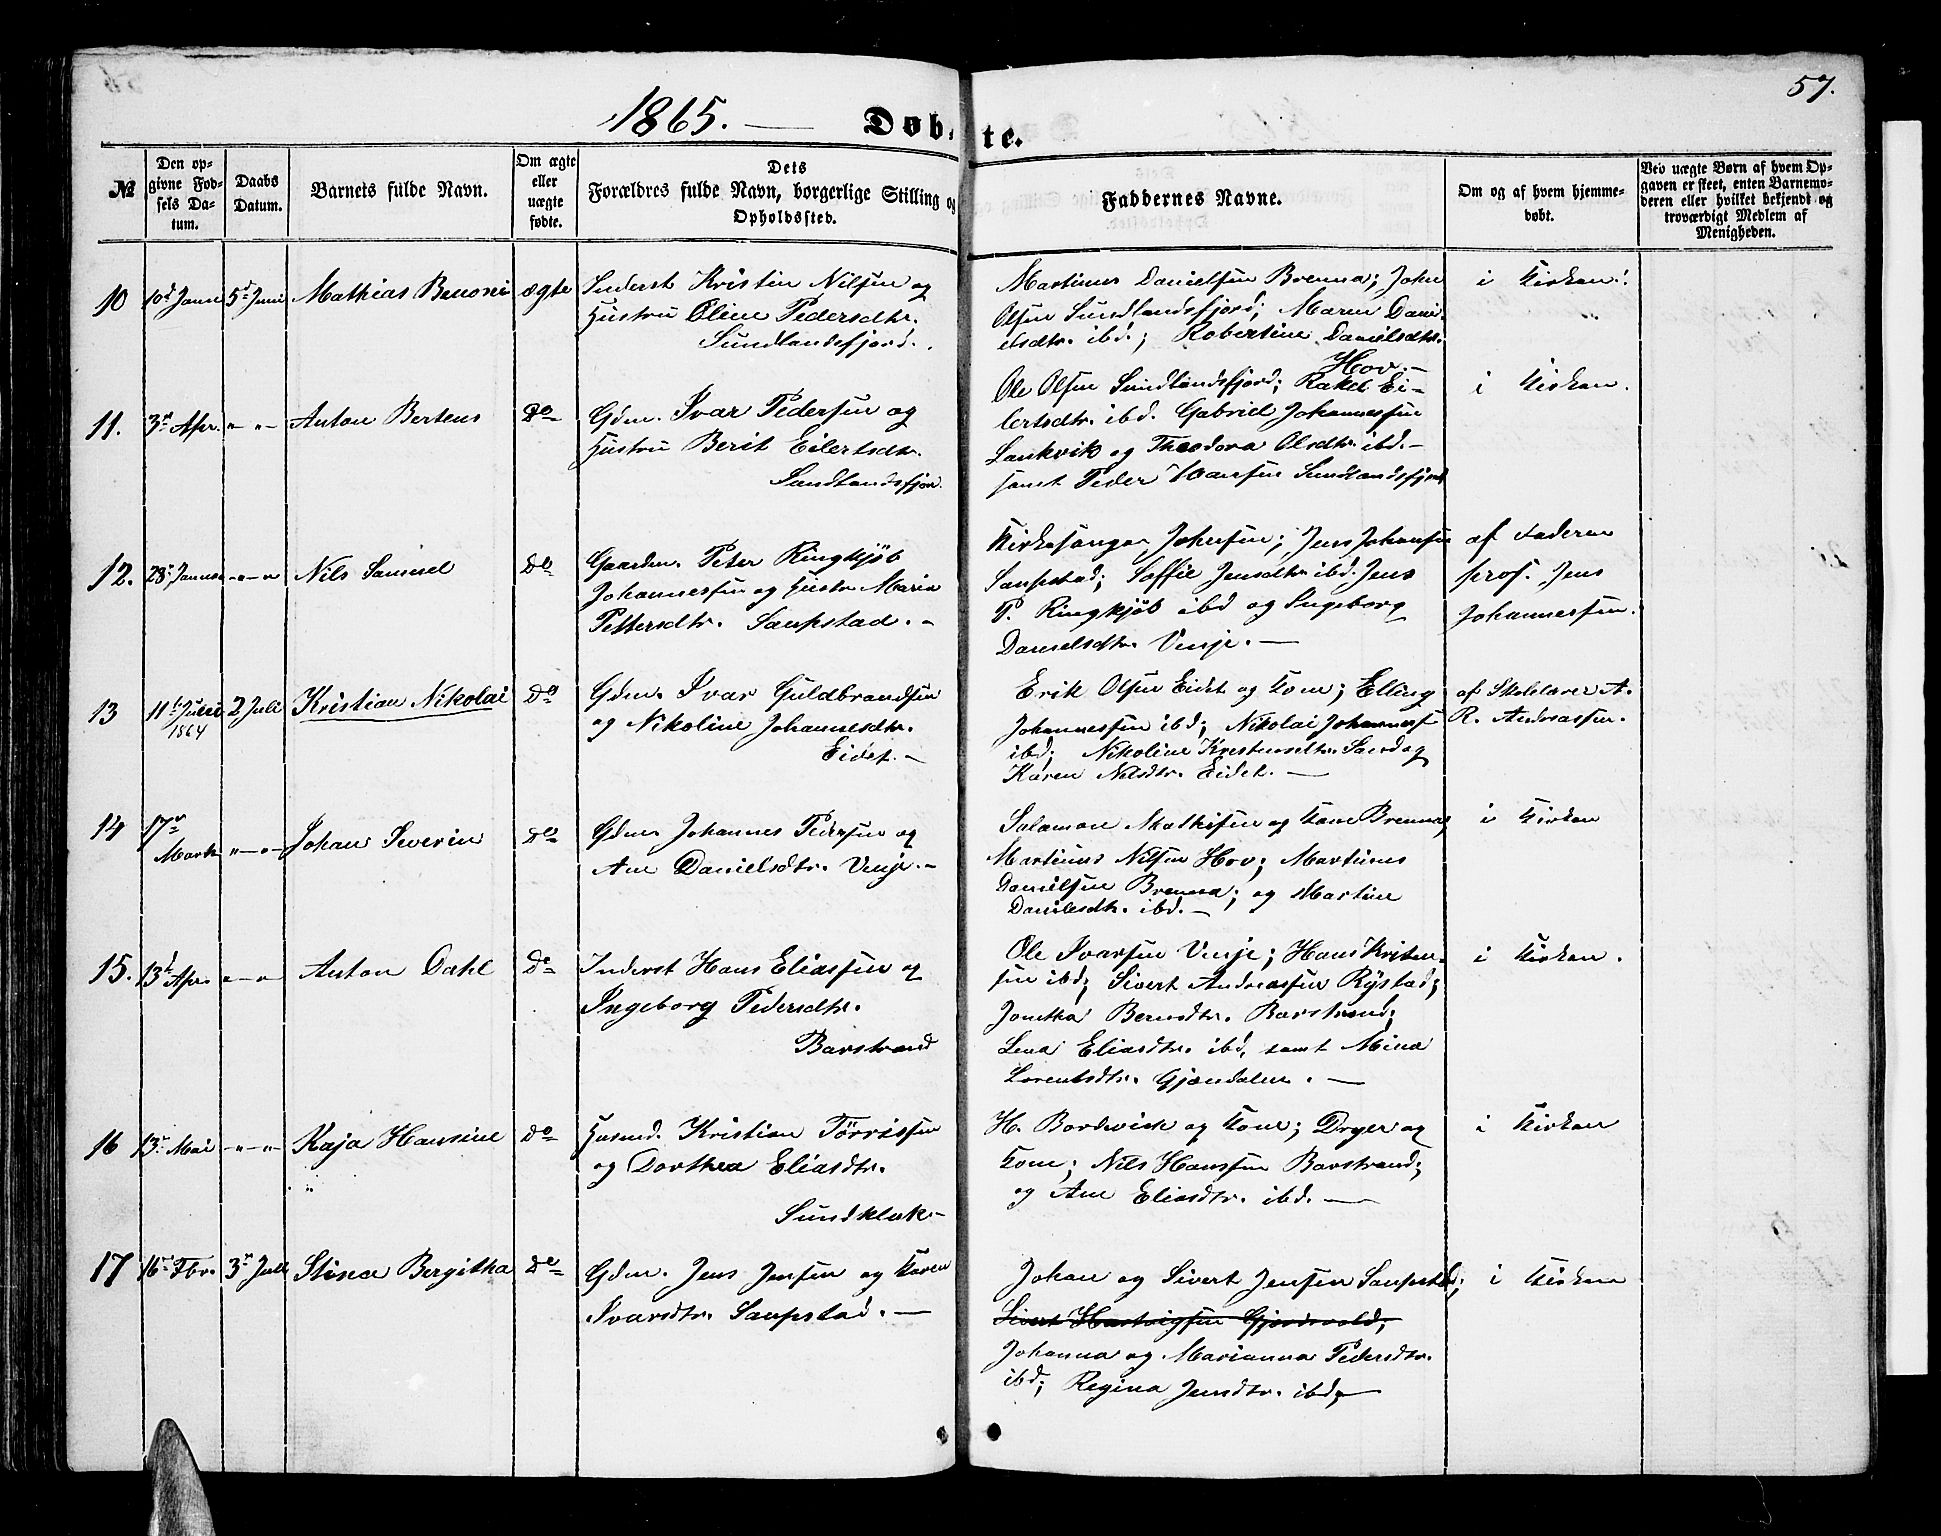 57.
1865. — Døbte.
№
Den opgivne Fødsels Datum.
Daabs Datum.
Barnets fulde Navn.
Om ægte eller uægte fødte.
Dets Forældres fulde Navn, borgerlige Stilling og Opholdssted.
Faddernes Navne.
Om og af hvem hjemmedøbt.
Ved uægte Børn af hvem Opgaven er skeet, enten Barnemoderen eller hvilket bekjendt og troværdigt Medlem af Menigheden.
10 10d Janu 5d Juni Mathias Benoni ægte
Inderst Kristen Nilsen og
Hustru Oline Pedersdtr.
Sundlandsfjord.
Martinus Danielsen Brenna; John
Olsen Sundlandsfjord; Maren Dani-
elsdtr. ibd.; Robertine Danielsdtr.
Hov. —
i Kirken.
11. 3. Apr. " — " Anton Bertens Do
Gdm. Ivar Pedersen og
Hustru Berit Eilertsdtr.
Sundlandsfjor.
Ole Olsen Sundlandsfjord; Rakel Ei-
lertsdtr. ibd. Gabriel Johannessen
Lankvik og Theodora Olsdtr. ibd. —
samt Peder Hansen Sundlandsfjord
i Kirken.
12. 28. Janua " — " Nils Samuel Do
Gaardm. Peter Ringkjøb
Johannessen og Hustr. Maria
Pettersdtr. Saupstad. —
Kirkesanger Johnsen; Jens Johansen
Saupstad; Soffie Jensdtr. ibd. Jens
P. Ringkjøb ibd og Ingeborg
Danielsdtr. Vinje. —
af Faderen
prof. Jens
Johannessen.
13 11t Juli 1864 2 Juli Kristian Nikolai Do
Gdm. Ivar Guldbrandsen
og Nikoline Johannesdtr.
Eidet. —
Erik Olsen Eidet og Kone; Elling
Johannessen ibd; Nikolai Johannes
ibd; Nikoline Kristensdtr. Sand og
Karen Nilsdtr. Eidet. —
af Skolelærer A.
R. Andreassen.
14 17 Marts " — " Johan Severin Do
Gdm. Johannes Pedersen og
Ane Danielsdtr. Vinje. —
Salamon Mathisen og Kone Brenna;
Martinus Nilsen Hov; Martinus
Danielsen Brenna; og Martine
Danielsdtr. ibd. —
i Kirken
15. 13d Apr. " — " Anton Dahl Do
Inderst Hans Eliassen og
Ingeborg Pedersdtr.
Barstrand
Ole Ivarsen Vinje; Hans Kristen-
sen ibd; Sivert Andreassen Rystad;
Jonetha Berntsdtr. Barstrand;
Lena Eliasdtr. ibd, samt Mina
Lorentsdtr. Gjøndalen. —
i Kirken.
16 13. Mai " — " Kaja Hansine Do
Husmd. Kristian Tørrissen
og Dorthea Eliasdtr.
Sundklak —
H. Bordevick og Kone; Dryer og
Kone; Nils Hanssen Barstrand;
og Ane Eliasdtr. ibd. —
i Kirken
17 16. Fbr. 3. Juli Stina Bergitha Do
Gdm. Jens Jensen og Karen
Ivarsdtr. Saupstad. —
Johan og Sivert Jensen Saupstad;
Sivert Hartvigsen Gjerdsvold;
Johanna og Marianna Pedersdtr.
ibd; Regina Jensdtr. ibd; —
i Kirken